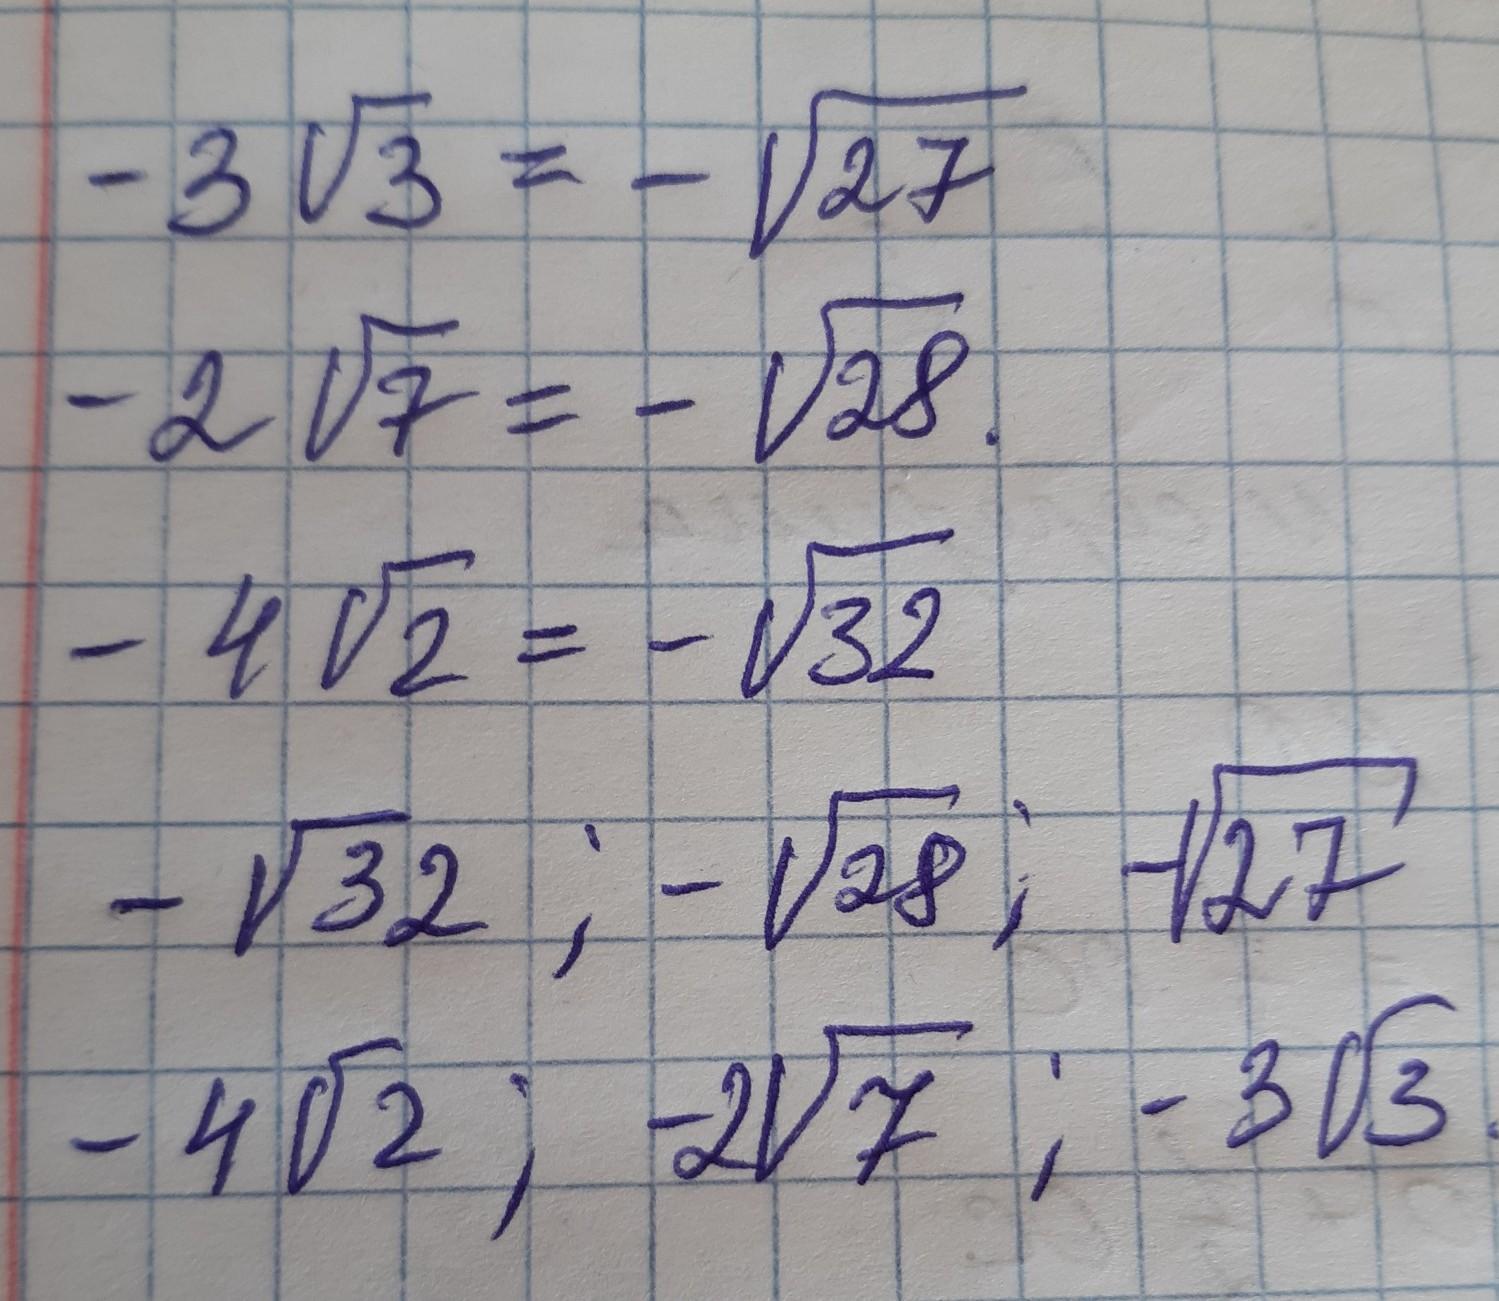 -3√3 = -√27
-2√7 = -√28.
-4√2 = -√32
-√32 ; -√28 ; -√27
-4√2 ; -2√7 ; -3√3.